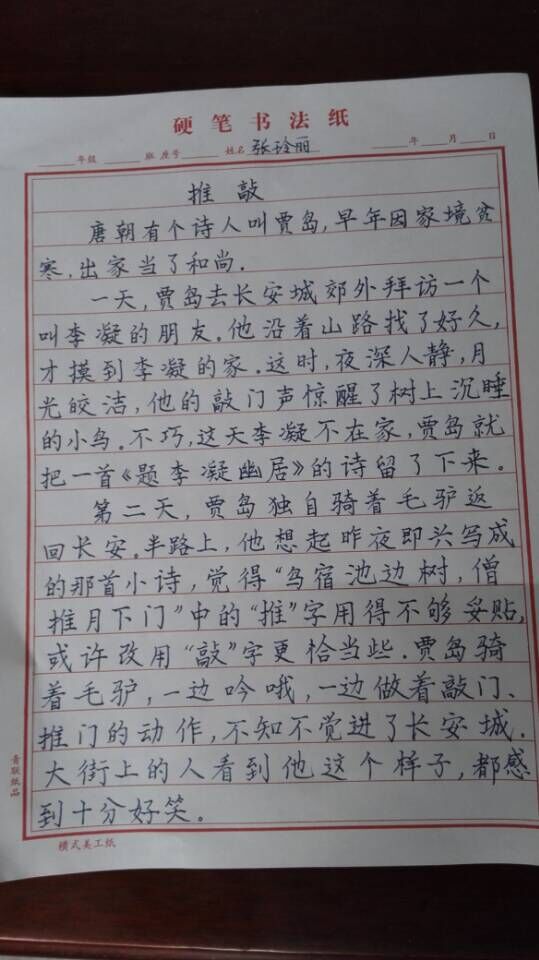 硬笔书法纸
年级 班 座号 姓名 张玲丽 年 月 日
推敲
唐朝有个诗人叫贾岛,早年因家境贫
寒,出家当了和尚.
一天,贾岛去长安城郊外拜访一个
叫李凝的朋友.他沿着山路找了好久,
才摸到李凝的家.这时,夜深人静,月
光皎洁,他的敲门声惊醒了树上沉睡
的小鸟.不巧,这天李凝不在家,贾岛就
把一首《题李凝幽居》的诗留了下来。
第二天,贾岛独自骑着毛驴返
回长安.半路上,他想起昨夜即兴写成
的那首小诗,觉得“鸟宿池边树,僧
推月下门”中的“推”字用得不够妥贴,
或许改用“敲”字更恰当些.贾岛骑
着毛驴,一边吟哦,一边做着敲门、
推门的动作,不知不觉进了长安城.
大街上的人看到他这个样子,都感
到十分好笑。
青联纸品
横式美工纸